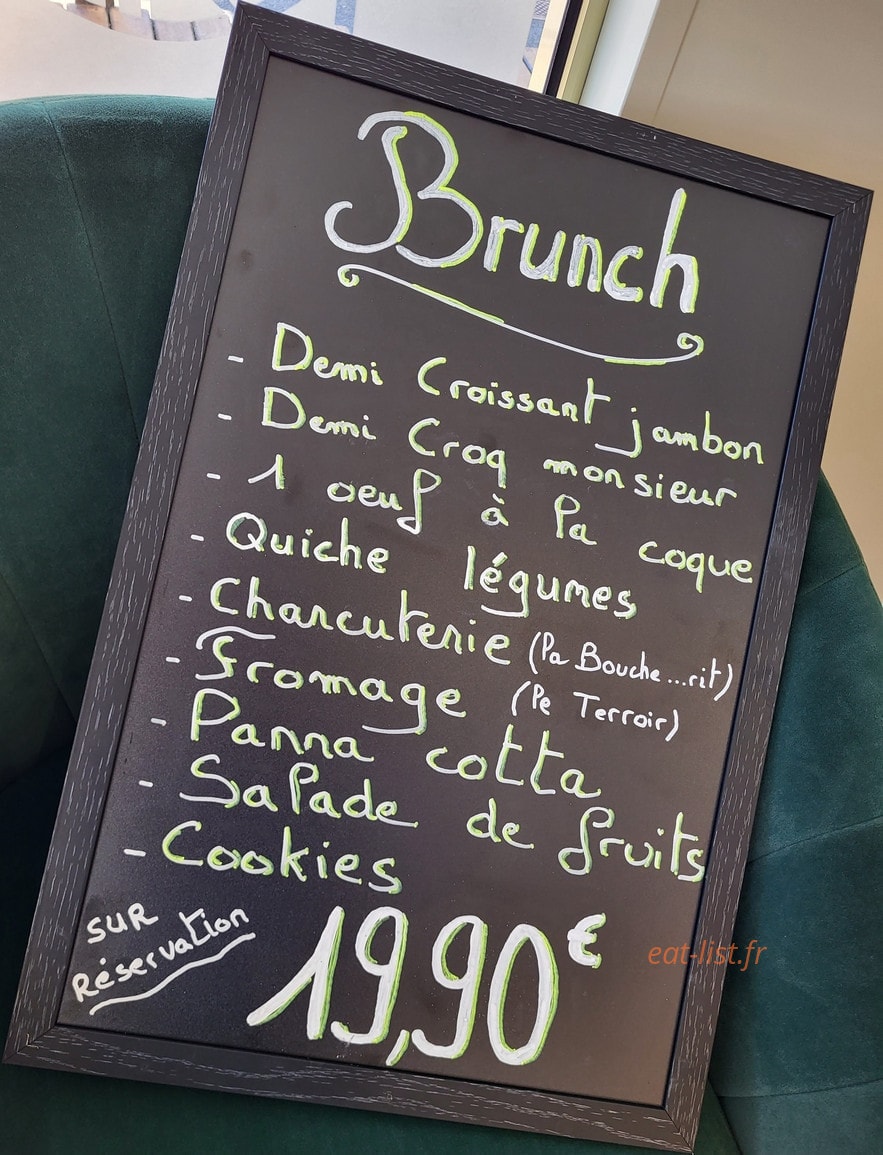 Brunch
- Demi Croissant jambon
- Demi Croq monsieur
- 1 oeuf à la coque
- Quiche légumes
- Charcuterie (la Bouche...rit)
- Fromage (le Terroir)
- Panna cotta
- Salade de fruits
- Cookies
SUR
Réservation
19,90€
eat-list.fr